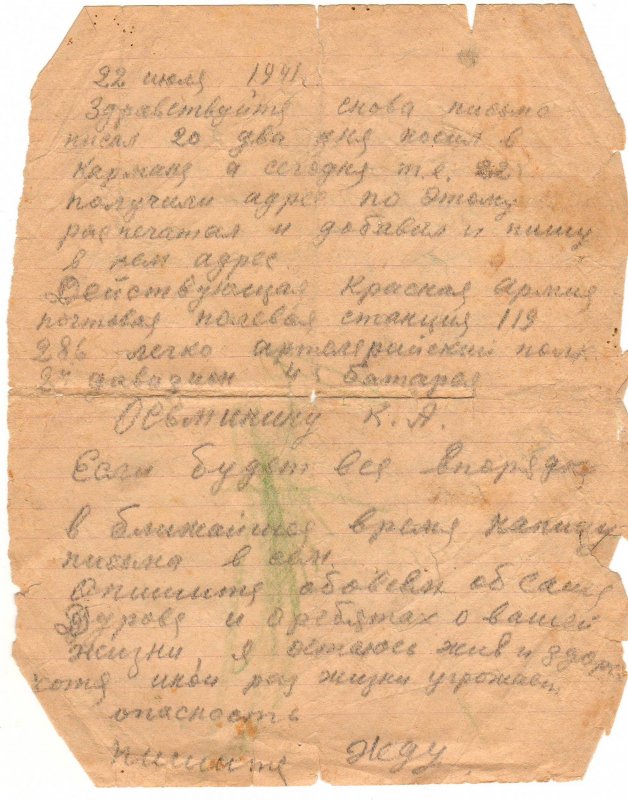 22 июля 1941г.
Здравствуйте снова письмо
писал 20 два дня носил в
кармане а сегодня т.е. 22
получили адрес по этому
распечатал и добавил и пишу
в нем адрес.
Действующая Красная Армия
почтовая полевая станция 119
286 легко артолерийский полк
2й дивизион 4 батарея
Осьминину К.А.
Если будет все впорядке
в ближайшее время напишу
письма всем.
Опишите обовсем об Саше
Дурове и о ребятах о вашей
жизни я остаюсь жив и здоров
хотя иной раз жизни угрожает
опасность
Пишите Жду